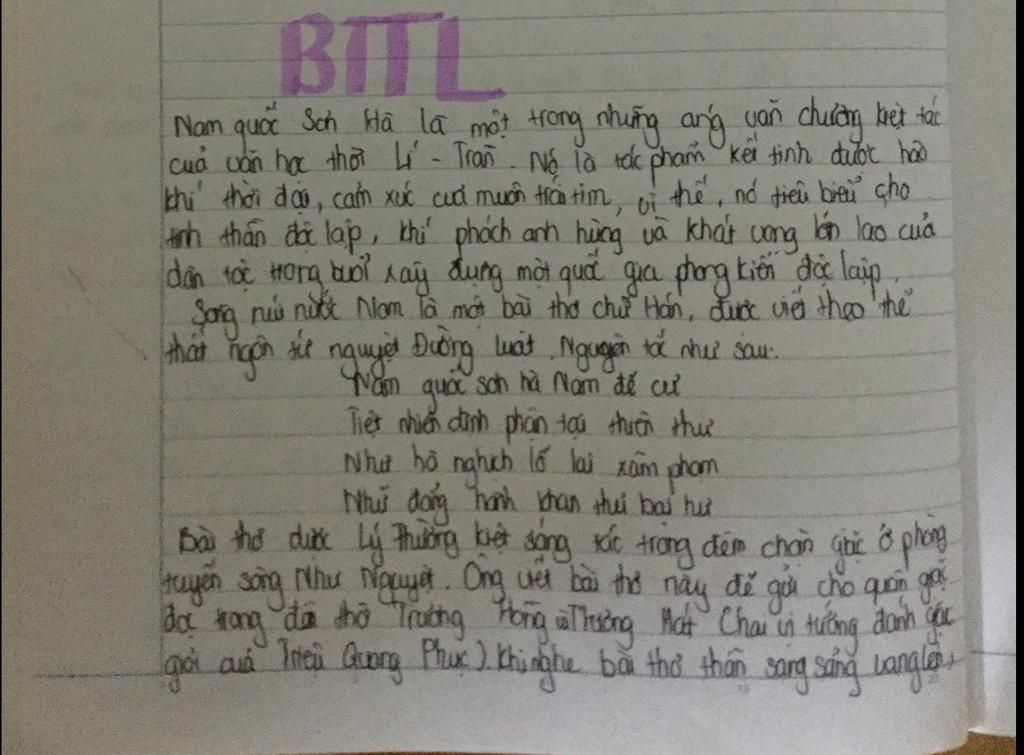 BTTL
Nam quốc Sơn Hà là một trong những áng văn chương kiệt tác
cuả văn học thời Lí - Trần. Nó là tác phẩm kết tinh được hào
khí thời đại, cảm xúc cuả muôn trái tim, vì thế, nó tiêu biểu cho
tinh thần độc lập, khí phách anh hùng và khát vọng lớn lao cuả
dân tộc trong buổi xây dựng một quốc gia phong kiến độc lập.
Sông núi nước Nam là một bài thơ chữ Hán, được viết theo thể
thất ngôn tứ nguyệt Đường luật. Nguyên tác như sau:
Nam quốc sơn hà Nam đế cư
Tiệt nhiên định phận tại thiên thư
Như hà nghịch lỗ lai xâm phạm
Nhữ đẳng hành khan thủ bại hư
Bài thơ được Lý Thường Kiệt sáng tác trong đêm chặn giặc ở phòng
tuyến sông Như Nguyệt. Ông viết bài thơ này để gửi cho quân giặc
đọc trong đền thờ Trương Hống và Trương Hát (hai vị tướng đánh giặc
giỏi cuả Triệu Quang Phục) khi nghe bài thơ thần sang sảng vang lên,